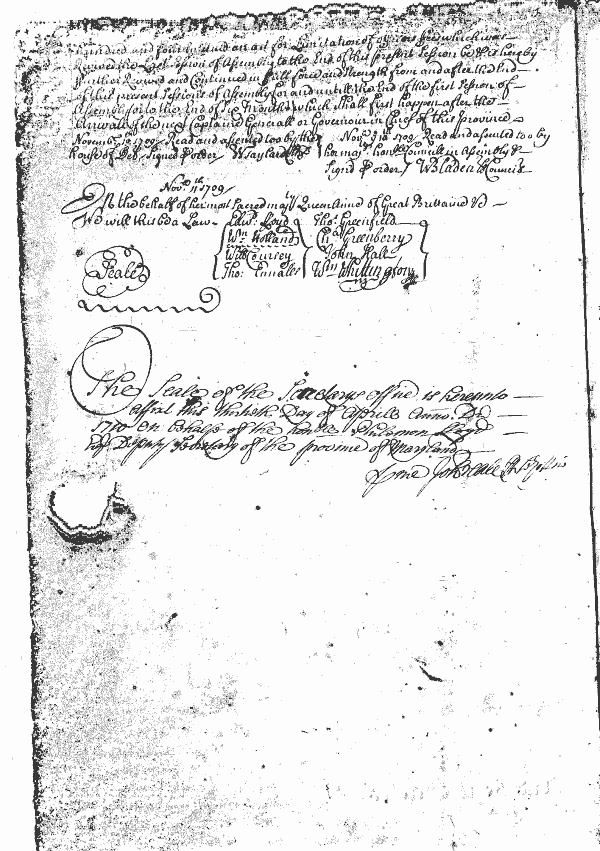 hundred and fourty and an act for Limitation of officers fees which was
Revived the Last Session of Assembly to the End of this present Session be & is hereby
further Revived and Continued in full force and Strength from and after the End
of this present Sessions of Assembly for and untill the End of the first Session of
Assembly or to the End of six Months which shall first happen after the
Arrivall of the next Captaine Generall or Governour in Chief of this Province
November 11 1709 Read and assented to by the
house of Del. Signed p order W Taylard
Novr 9th 1709 Read and assented to by
her majts honble Councill in Assembly &
Signd p order W Bladen Councll
Novr 11th 1709
On the behalf of her most Sacred majty Queen Anne of Great Brittaine &c
We will this be a Law
Edwd Lloyd
Wm Holland
Will Coursey
Tho: Ennalls
Tho: Greenfield
Ch: Greenberry
John Hall
Wm Whittington
Seale
The Seale of the Secretarys office is hereunto
affixt this Day of Aprill Anno Dni
1710 on behalfe of the honble Philemon Lloyd
Esq Deputy Secretary of the province of Maryland